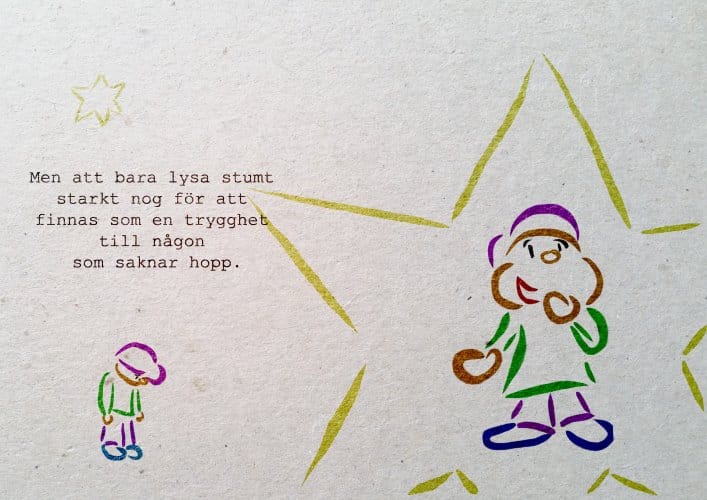 Men att bara lysa stumt
starkt nog för att
finnas som en trygghet
till någon
som saknar hopp.